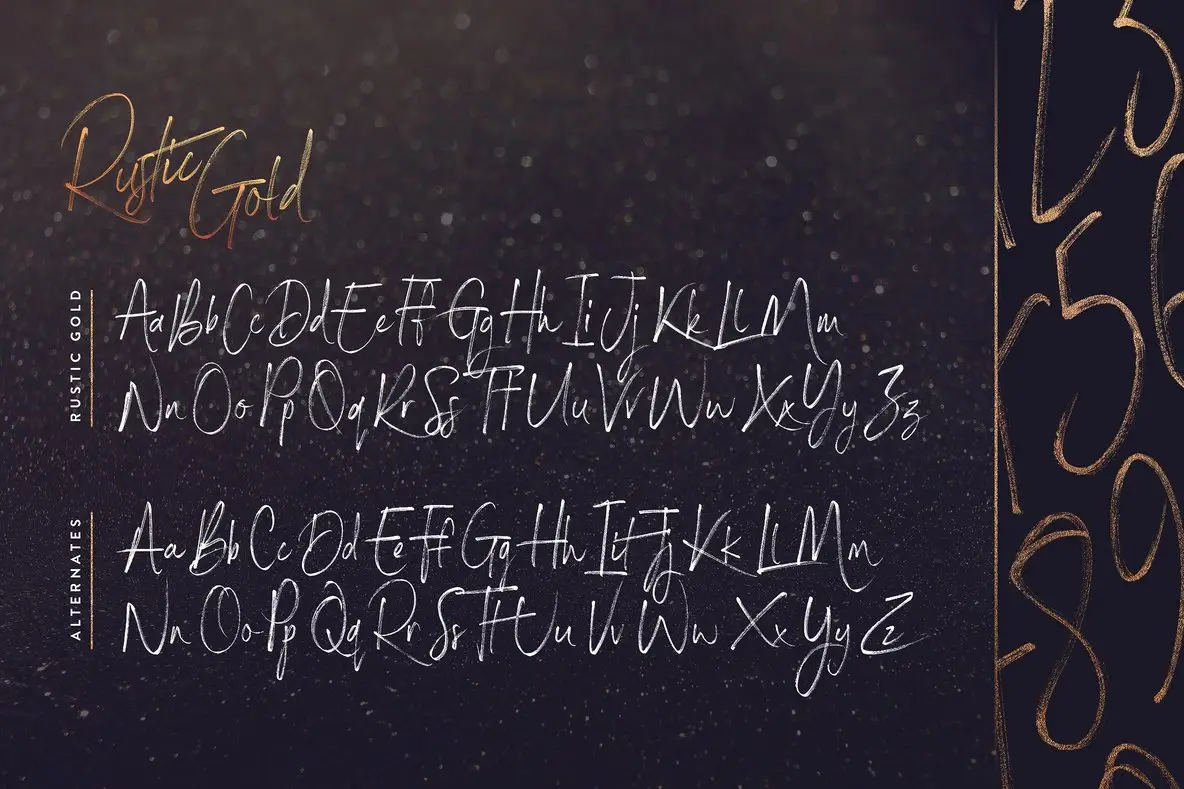 Rustic Gold
RUSTIC GOLD
Aa Bb Cc Dd Ee Ff Gg Hh Ii Jj Kk Ll Mm
Nn Oo Pp Qq Rr Ss Tt Uu Vv Ww Xx Yy Zz
ALTERNATES
Aa Bb Cc Dd Ee Ff Gg Hh Ii Jj Kk Ll Mm
Nn Oo Pp Qq Rr Ss Tt Uu Vv Ww Xx Yy Zz
2 3
5 6
8 9